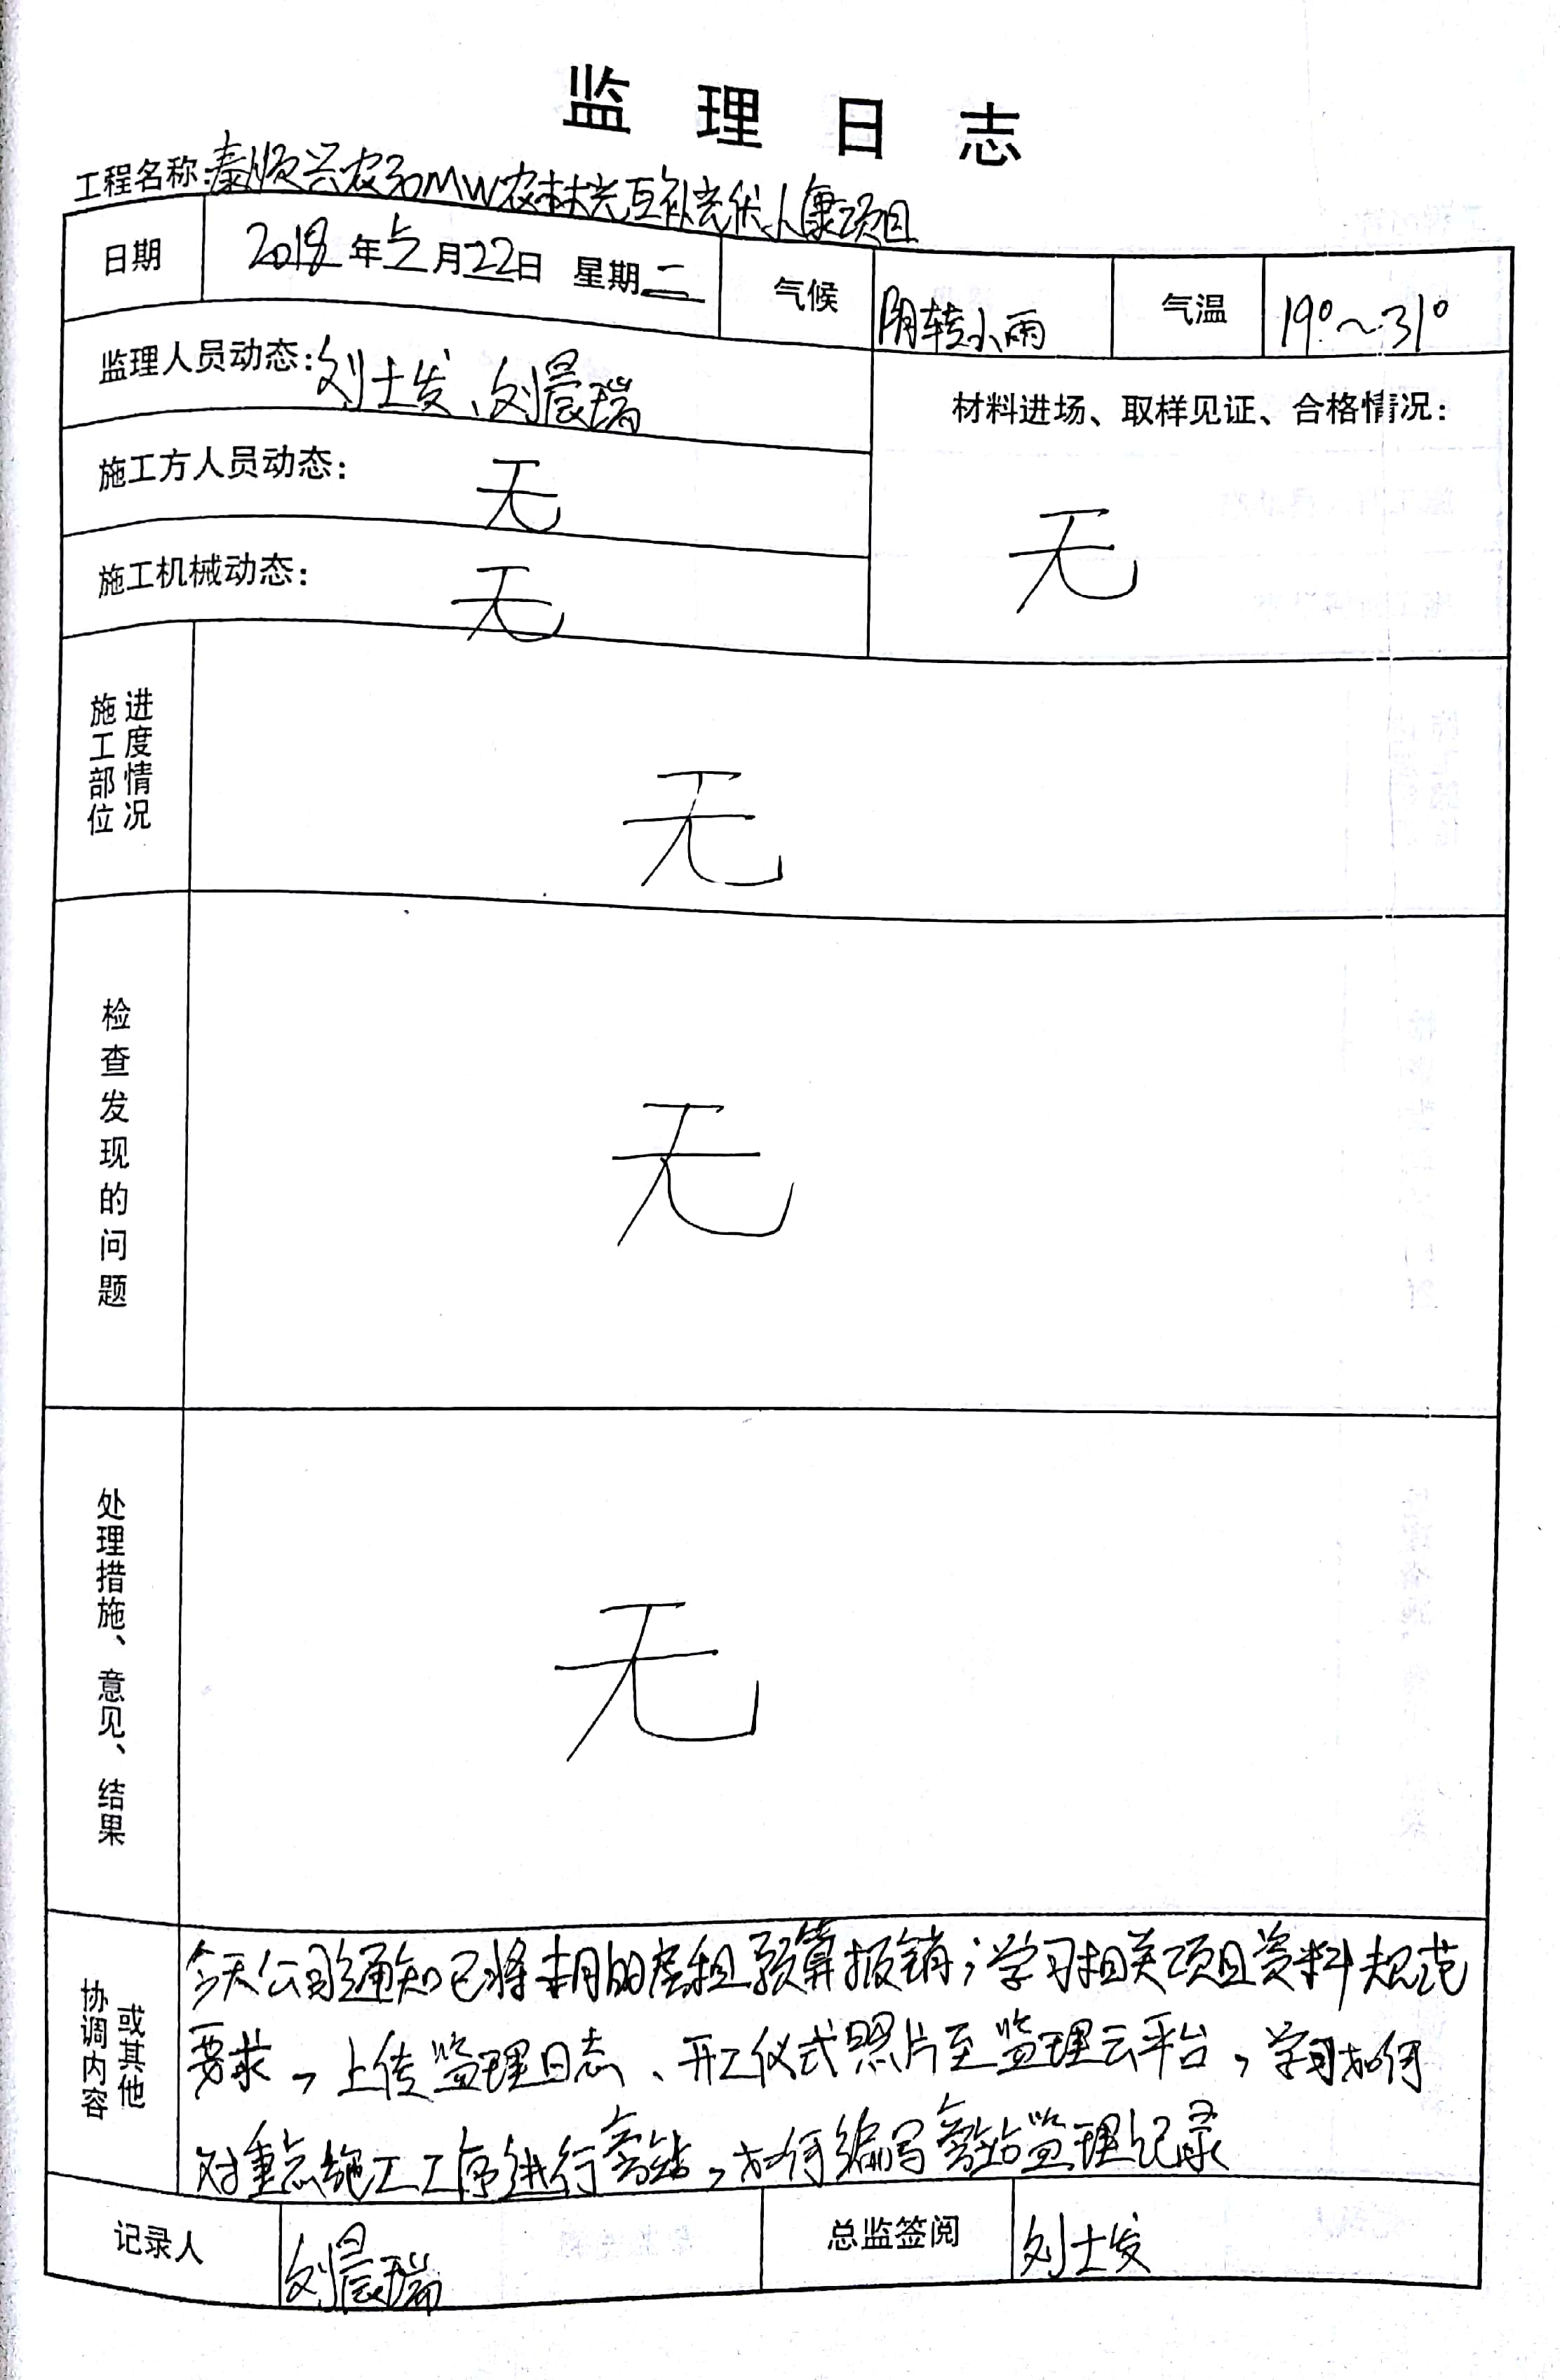 监理日志
工程名称:泰顺兴农30MW农林光互补光伏小康项目
日期 2018年5月22日 星期二 气候 阴转小雨 气温 19°~31°
监理人员动态:刘士发、刘晨瑞
材料进场、取样见证、合格情况:
施工方人员动态: 无
无
施工机械动态: 无
施工部位
进度情况
无
检查发现的问题
无
处理措施、意见、结果
无
协调内容
或其他
今天公司通知已将本月的房租预算报销;学习相关项目资料规范
要求,上传监理日志、开工仪式照片至监理云平台,学习如何
对重点施工工序进行旁站,如何编写旁站监理记录
记录人 刘晨瑞 总监签阅 刘士发